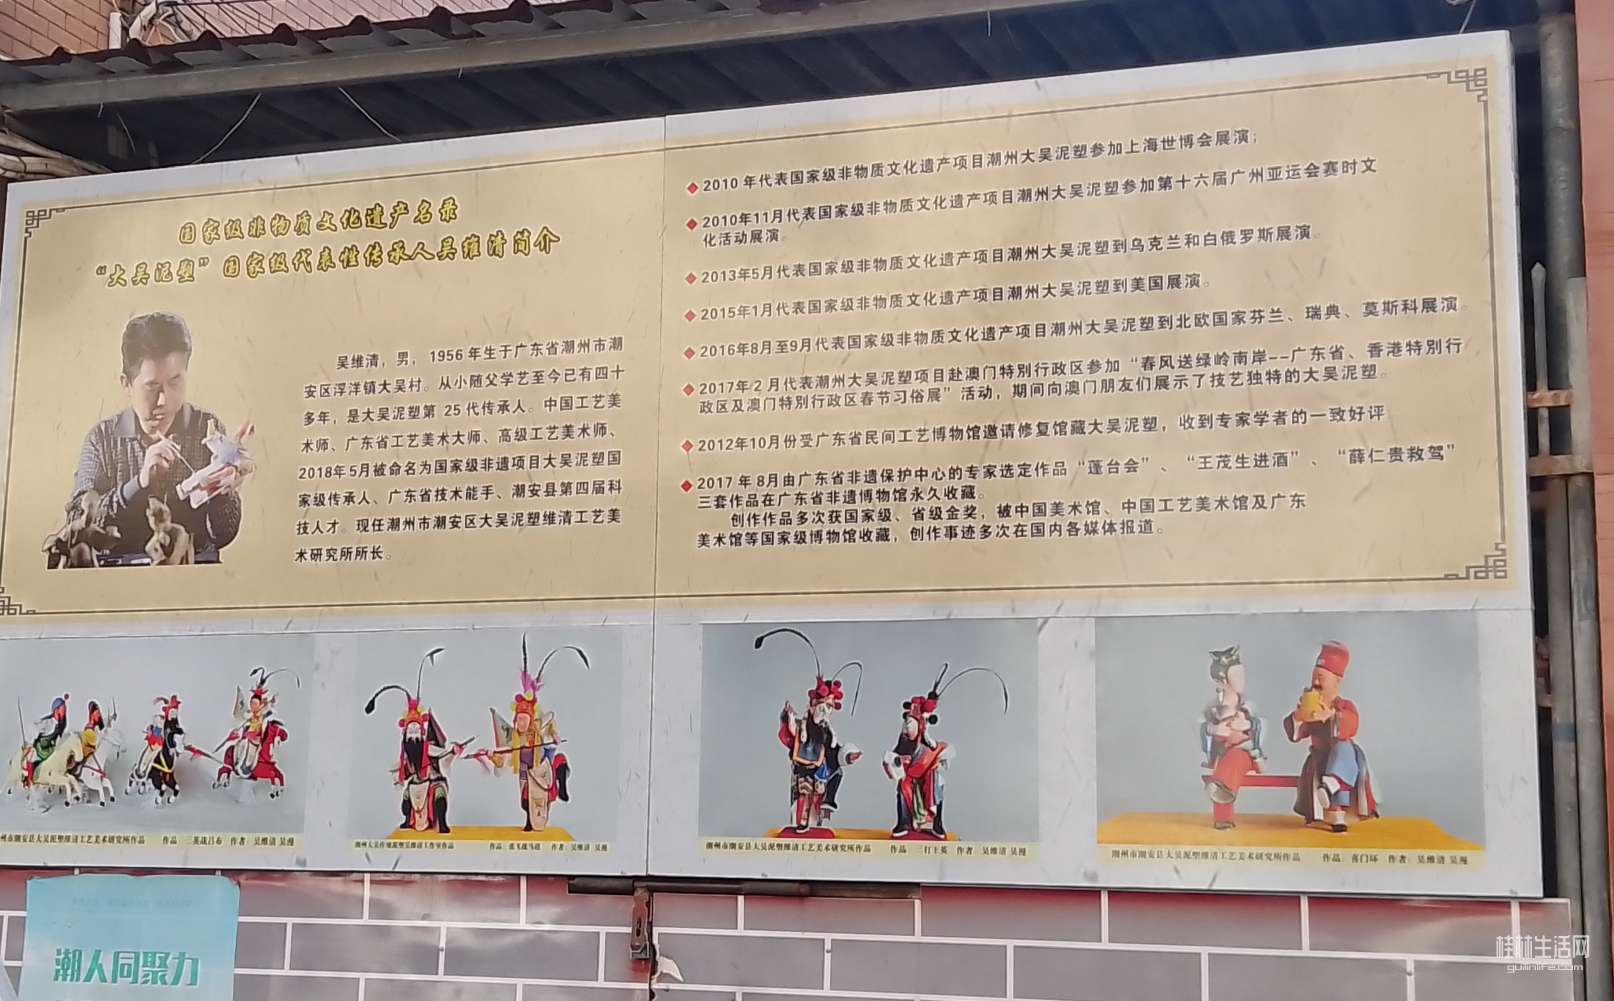 国家级非物质文化遗产名录
“大吴泥塑”国家级代表性传承人吴维清简介
吴维清，男，1956年生于广东省潮州市潮
安区浮洋镇大吴村。从小随父学艺至今已有四十
多年，是大吴泥塑第 25代传承人。中国工艺美
术师、广东省工艺美术大师、高级工艺美术师、
2018年5月被命名为国家级非遗项目大吴泥塑国
家级传承人、广东省技术能手、潮安县第四届科
技人才。现任潮州市潮安区大吴泥塑维清工艺美
术研究所所长。
2010 年代表国家级非物质文化遗产项目潮州大吴泥塑参加上海世博会展演；
2010年11月代表国家级非物质文化遗产项目潮州大吴泥塑参加第十六届广州亚运会赛时文
化活动展演。
2013年5月代表国家级非物质文化遗产项目潮州大吴泥塑到乌克兰和白俄罗斯展演。
2015年1月代表国家级非物质文化遗产项目潮州大吴泥塑到美国展演。
2016年8月至9月代表国家级非物质文化遗产项目潮州大吴泥塑到北欧国家芬兰、瑞典、莫斯科展演。
2017年 2 月代表潮州大吴泥塑项目赴澳门特别行政区参加“春风送绿岭南岸--广东省、香港特别行
政区及澳门特别行政区春节习俗展”活动，期间向澳门朋友们展示了技艺独特的大吴泥塑。
2012年10月份受广东省民间工艺博物馆邀请修复馆藏大吴泥塑，收到专家学者的一致好评
2017 年 8月由广东省非遗保护中心的专家选定作品“蓬台会”、“王茂生进酒”、“薛仁贵救驾”
三套作品在广东省非遗博物馆永久收藏。
创作作品多次获国家级、省级金奖，被中国美术馆、中国工艺美术馆及广东
美术馆等国家级博物馆收藏，创作事迹多次在国内各媒体报道。
州市潮安县大吴泥塑维清工艺美术研究所作品 作品 三英战吕布 作者 吴维清 吴漫
作品：张飞战马超 作者：吴维清 吴漫
潮州市潮安县大吴泥塑维清工艺美术研究所作品 作品 三打王英 作者 吴维清 吴漫
潮州市潮安县大吴泥塑维清工艺美术研究所作品 作品：喜门环 作者：吴维清 吴漫
潮人同聚力
桂林生活网
guilinlife.com